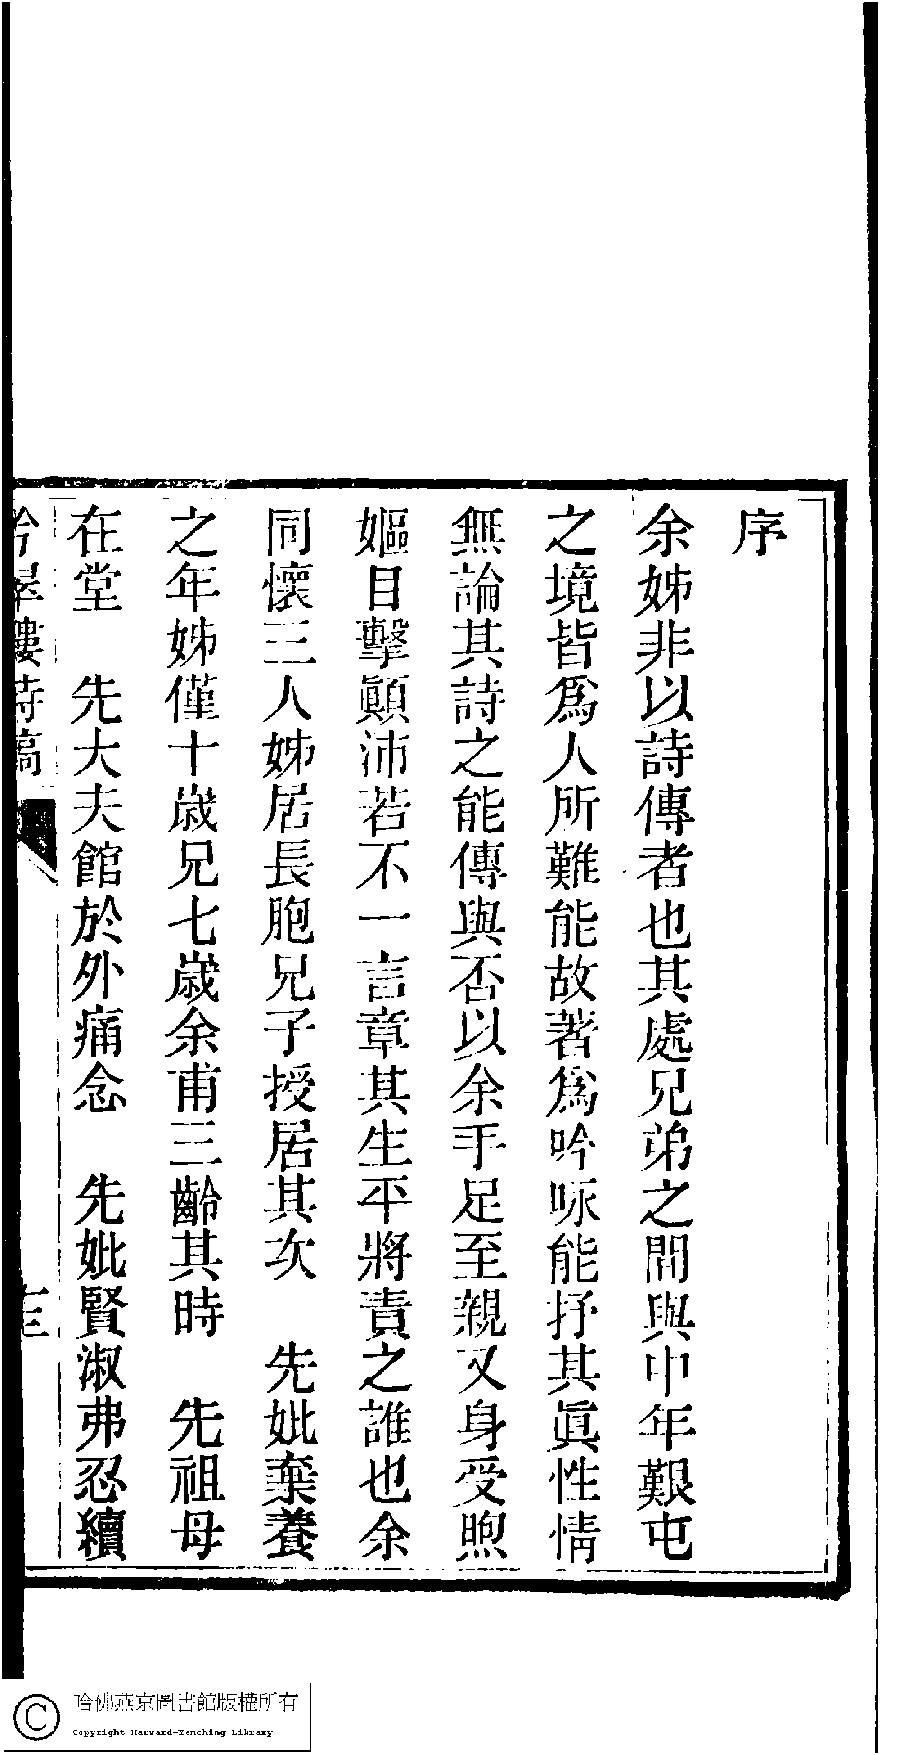 序
余姊非以詩傳者也其處兄弟之間與中年艱屯
之境皆爲人所難能故著爲吟咏能抒其眞性情
無論其詩之能傳與否以余手足至親又身受煦
嫗目擊顚沛若不一言章其生平將責之誰也余
同懷三人姊居長胞兄子授居其次　先妣棄養
之年姊僅十歲兄七歲余甫三齡其時　先祖母
在堂　先大夫館於外痛念　先妣賢淑弗忍續
哈佛燕京圖書館版權所有
Copyright Harvard-Yenching Library